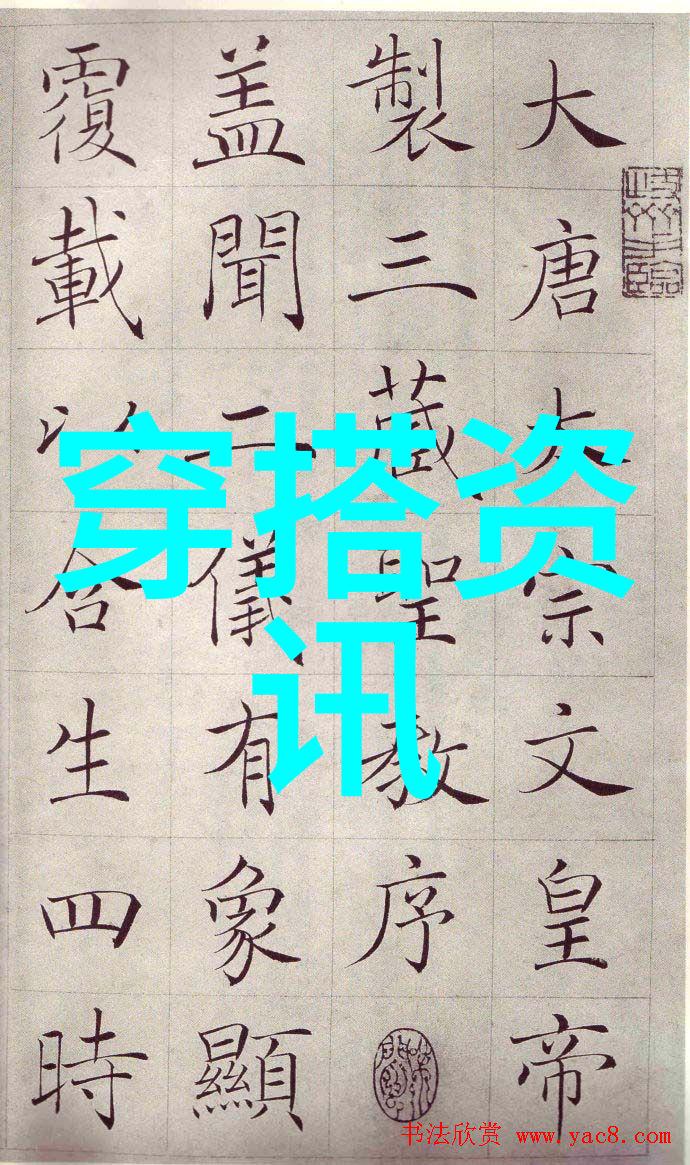 大唐太宗文皇帝
製三藏聖教序
盖聞二儀有象顯
覆載以含生四時
穿搭资
讯
书法欣赏 www.yac8.com